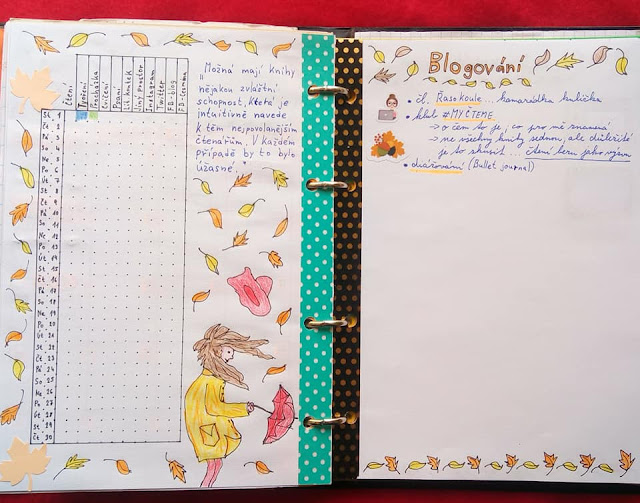 Čtení
Tvoření
Procházka
Cvičení
Psaní
Jiný prostor
Instagram
Twitter
FB-blog
St 1
Čt 2
Pá 3
So 4
Ne 5
Po 6
Út 7
St 8
Čt 9
Pá 10
So 11
Ne 12
Po 13
Út 14
St 15
Čt 16
Pá 17
So 18
Ne 19
Po 20
Út 21
St 22
Čt 23
Pá 24
So 25
Ne 26
Po 27
Út 28
St 29
Čt 30
„Možná mají knihy
nějakou zvláštní
schopnost, která je
intuitivně navede
k těm nejpovolanějším
čtenářům. V každém
případě by to bylo
úžasné."
Blogování
• čl. Řasokoule... kamarádka knihička
• klub #MYČTEME
→ o čem to je, co pro mě znamená
→ ne všechny knihy sednou, ale důležité
je to zkusit čtení beru jako výzvu
• diářování (Bullet journal)